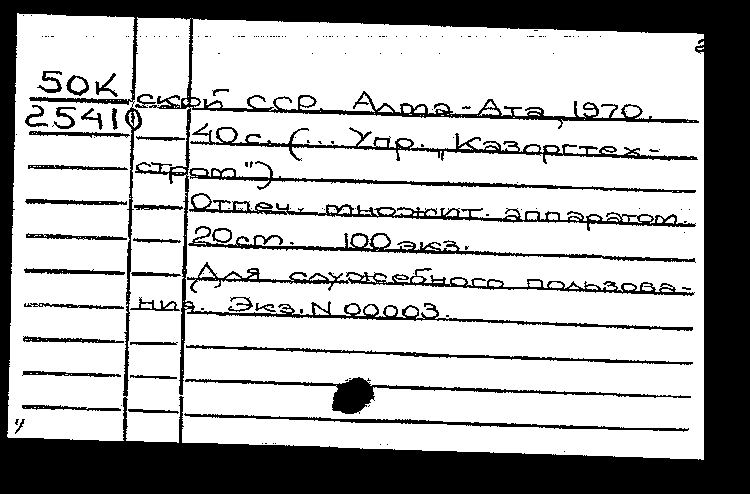 2
50К ской ССР. Алма-Ата, 1970.
25410 40 с. (... Упр. „Казоргтех-
строт")
Отпеч. множит. аппаратом.
20 см. 100 экз.
Для служебного пользова-
ния. Экз. N 00003.
4